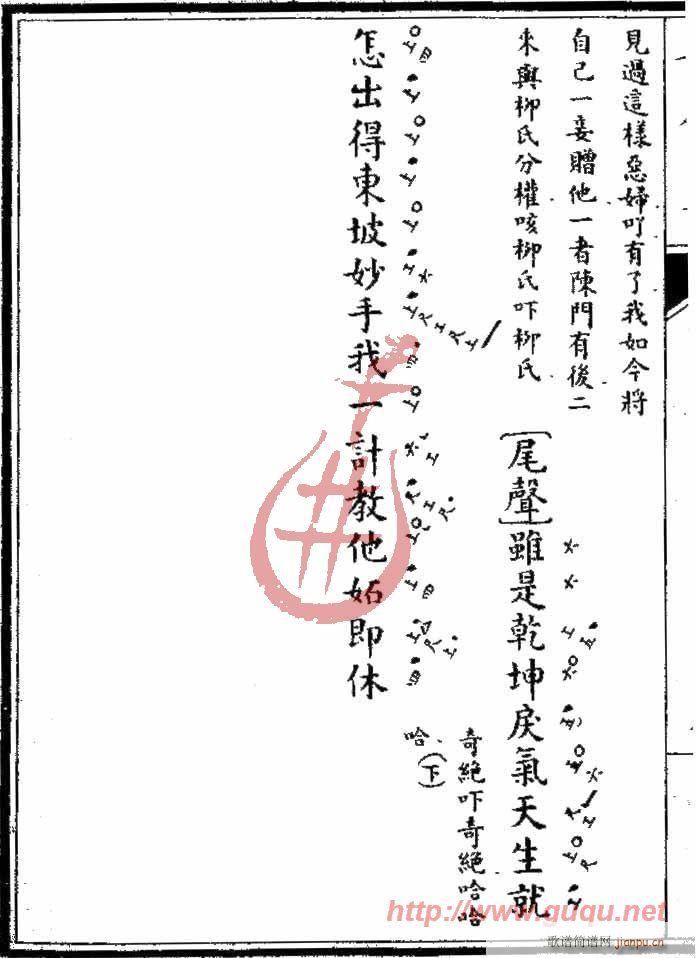 見過這樣惡婦吖有了我如今將
自己一妾贈他一者陳門有後二
來與柳氏分權咳柳氏吓柳氏
[尾聲]雖是乾坤戾氣天生就
怎出得東坡妙手我一計教他妬即休
奇絕吓奇絕哈哈
哈(下)
http://www.guqu.net
歌谱简谱网 jianpu.cn